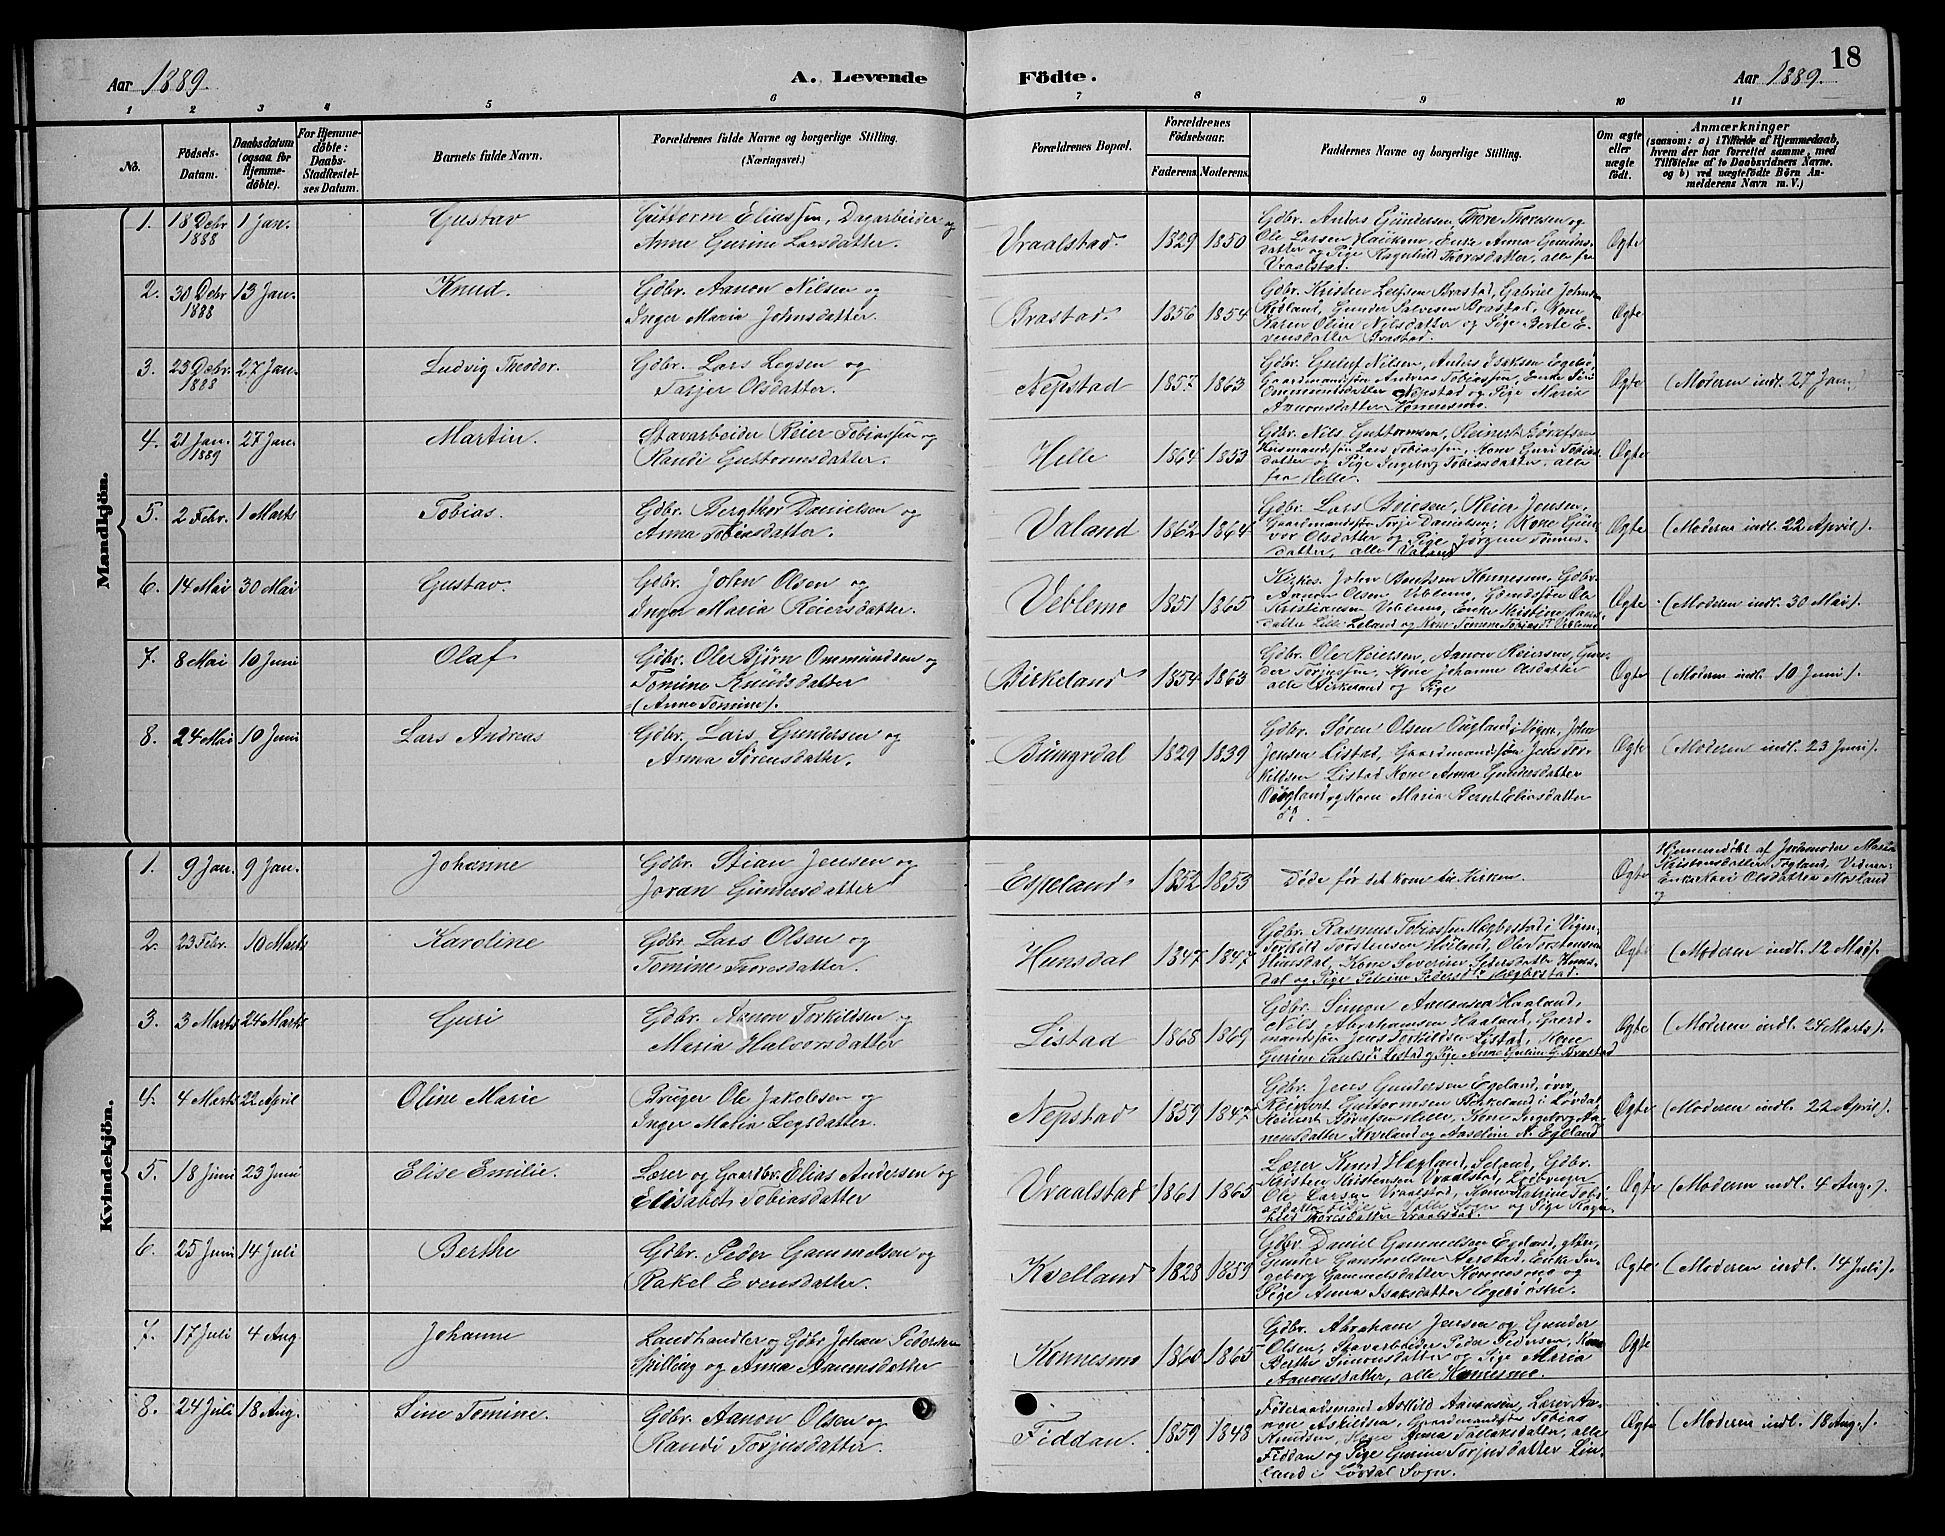 Aar 1889. A. Levende Födte. Aar 1889. 18
1 2 3 4 5 6 7 8 9 10 11
No.
Födsels-Datum.
Daabsdatum (ogsaa for Hjemme-döbte).
For Hjemme-döbte: Daabs-Stadfæstel-ses Datum.
Barnets fulde Navn.
Forældrenes fulde Navne og borgerlige Stilling. (Næringsvei.)
Forældrenes Bopæl.
Forældrenes Födselsaar.
Faderens. Moderens.
Faddernes Navne og borgerlige Stilling.
Om ægte eller uægte födt.
Anmærkninger
(saasom: a) i Tilfælde af Hjemmedaab,
hvem der har forrettet samme, med
Tilföielse af to Daabsvidners Navne.
og b) ved uægtefödte Börn An-
melderens Navn m. V.)
Mandkjön.
1. 18 Debr 1888 1 Jan. Gustav
Guttorm Eliassen, Dagarbeider og
Anne Gurine Larsdatter.
Vraalstad. 1829 1850
Gdbr. Anders Gundersen, Thore Thoresen og
Ole Larsen Haukom, Enke Anna Gunders-
datter og Pige Ragnhild Thoresdatter, alle fra
Vraalstad.
Ægte
2. 30 Debr 1888 13 Jan. Knud.
Gdbr. Aanon Nilsen og
Inger Maria Johnsdatter.
Brastad 1856 1854
Gdbr. Kristen Leifsen Brastad, Gabriel Johnsen
Rødland, Gunder Salvesen Brastad, Kone
Karen Oline Nilsdatter og Pige Berte E-
vensdatter Brastad.
Ægte
3. 23 Debr. 1888 27 Jan. Ludvig Theodor.
Gdbr. Lars Legsen og
Tarjer Olsdatter.
Nepstad 1857 1863
Gdbr. Gunuf Nilsen, Anders Isaksen Egebø,
Gaardmandssøn Andreas Tobiassen, Enke Siri
Ommundsdatter Nepstad og Pige Maria
Aanonsdatter Konnesmo.
Ægte (Moderen indl. 27 Jan.)
4. 21 Jan. 1889 27 Jan. Martin.
Stavarbeider Reier Tobiassen og
Randi Guttormsdatter.
Helle 1864 1853
Gdbr. Nils Guttormsen, Reinert Sørensen,
Husmandssøn Lars Tobiassen, Kone Guri Tobias-
datter og Pige Ingeborg Tobiasdatter, alle
fra Helle.
Ægte
5. 2 Febr. 1 Marts Tobias.
Gdbr. Bergthor Danielsen og
Anna Tobiasdatter.
Valand 1862 1864
Gdbr. Lars Boiesen, Reier Jensen,
Gaardmandssøn Torje Danielsen, Kone Gun-
vor Olsdatter og Pige Jørgine Tønnes-
datter, alle Valand
Ægte (Moderen indl. 22 April).
6. 14 Mai 30 Mai Gustav.
Gdbr. John Olsen og
Inger Maria Reiersdatter.
Veblemo 1851 1865
Kirkes. John Bentsen Konnesmo, Gdbr.
Aanon Olsen Veblemo, Gdmdssøn Ole
Kristiansen Veblemo, Enke Kristine Hans-
datter Lille Leland og Kone Tomine Tobiasd. Veblemo
Ægte (Moderen indl. 30 Mai).
7. 8 Mai 10 Juni Olaf
Gdbr. Ole Bjørn Ommundsen og
Tomine Knudsdatter
(Anna Tomine).
Birkeland 1854 1863
Gdbr. Ole Reiersen, Aanon Reiersen, Gun-
der Torjussen, Kone Johanne Olsdatter
alle Birkeland og Pige
Ægte (Moderen indl. 10 Juni).
8. 24 Mai 10 Juni Lars Andreas
Gdbr. Lars Gundersen og
Anna Sørensdatter.
Bumyrdal 1829 1839
Gdbr. Søren Olsen Øugland i Vigm, John
Jensen Listad, Gaardmandssøn Jens Tor-
kildsen Listad Kone Anna Gundersdatter
Øugland og Kone Maria Bernt Eliasdatter
Ægte (Moderen indl. 23 Juni).
Kvindekjön.
1. 9 Jan. 9 Jan. Johanne
Gdbr. Stian Jensen og
Joran Gundersdatter
Eskeland 1852 1853
Døde før det kom til Kirken.
Ægte
Hjemmedøbt af Jordmoder Maria
Kristensdatter Fogland. Vidner
Enke Kari Olsdatter Mosland
2. 23 Febr. 10 Marts Karoline
Gdbr. Lars Olsen og
Tomine Thoresdatter.
Hunsdal 1847 1847
Gdbr. Rasmus Tobiassen Mægbestad i Vigm,
Torkild Torstensen Høiland, Ole Torstensen
Hunsdal, Kone Severine Pedersdatter Huns-
dal og Pige Peline Pedersd. Mægbestad.
Ægte (Moderen indl. 12 Mai).
3. 3 Marts 24 Marts Guri
Gdbr. Aanon Torkildsen og
Maria Halvorsdatter
Listad 1868 1869
Gdbr. Simon Aanensen Haaland,
Nils Abrahamsen Haaland, Gaard-
mandssøn Jens Torkildsen Listad, Kone
Gurine Paulsd. Listad og Pige Anne Gurine G. Brastad
Ægte (Moderen indl. 24 Marts).
4. 4 Marts 22 April Oline Marie
Bruger Ole Jakobsen og
Inger Maria Legsdatter.
Nepstad 1859 1847
Gdbr. Jens Gundersen Egeland, øvre,
Reinert Guttormsen Birkeland i Løvdal,
Reinert Sørensen Helle, Kone Ingeborg Aa-
nensdatter Kveland og Aaseløin N. Egeland
Ægte (Moderen indl. 22 April).
5. 18 Juni 23 Juni Elise Emilie.
Lærer og Gaardbr. Elias Andersen og
Elisabet Tobiasdatter
Vraalstad 1861 1865
Lærer Knud Hægland, Seland, Gdbr.
Kristen Kristensen Vraalstad, Leibruger
Ole Larsen Vraalstad, Kone Katrine Tobi-
asdatter Fidje i Valle Sogn og Pige Ragn-
hild Thoresdatter Vraalstad.
Ægte (Moderen indl. 4 Aug.).
6. 25 Juni 14 Juli Berthe
Gdbr. Peder Gammelsen og
Rakel Evensdatter.
Kvelland 1828 1859
Gdbr. Daniel Gammelsen Egeland, yttre,
Gunder Gammelsen Aerstad, Enke In-
geborg Gammelsdatter Konnesmo og
Pige Anna Isaksdatter Egebø østre.
Ægte (Moderen indl. 14 Juli).
7. 17 Juli 4 Aug. Johanne
Landhandler og Gdbr Johan Pedersen
Spilling og Anna Aanensdatter
Konnesmo 1860 1865
Gdbr. Abraham Jensen og Gunder
Olsen, Stavarbeider Peder Pedersen, Kone
Berthe Simonsdatter og Pige Maria
Aanonsdatter, alle Konnesmo.
Ægte
8. 24 Juli 18 Aug. Sine Tomine.
Gdbr. Aanon Olsen og
Randi Torjusdatter.
Fiddan. 1859 1848
Føderaadsmand Askild Aanonsen, Lærer Aa-
non Askildsen, Gaardmandssøn Tobias
Knudsen, Kone Anna Tallaksdatter, alle
Fiddan og Pige Gurine Torjusdatter Lien-
land i Løvdal Sogn.
Ægte (Moderen indl. 18 Aug.).